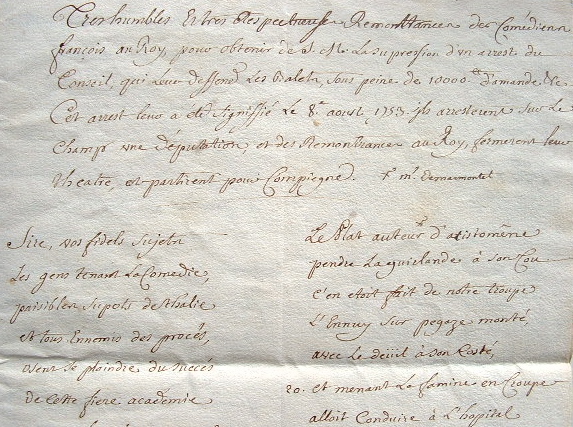 Tres humbles Et tres Respectueuse Remontrances des Comédiens
françois au Roy, pour obtenir de S. M. La supression d'un arrest du
Conseil, qui leur deffend Les Balets, sous peine de 10000# d'amande. &c
Cet arrest leur a été signiffié Le 8e aoust 1753. ils arresterent sur Le
Champ une Députation, et des Remontrances au Roy, fermerent leur
theatre, et partirent pour Compiegne. m. demarmontel
Sire, vos fidels sujets
Les gens tenant La Comedie,
paisibles suposts de thalie
et tous Ennemis des procés,
osent se plaindre du succés
de cette fiere academie
Le Plat auteur d'aristomêne
pendre La guirlande à son Cou
c'en etoit fait de notre troupe
L'Ennuy sur pegaze monté,
avec Le deüil à son Costé,
20. et menant La famine en Croupe
alloit Conduire à L'hopital